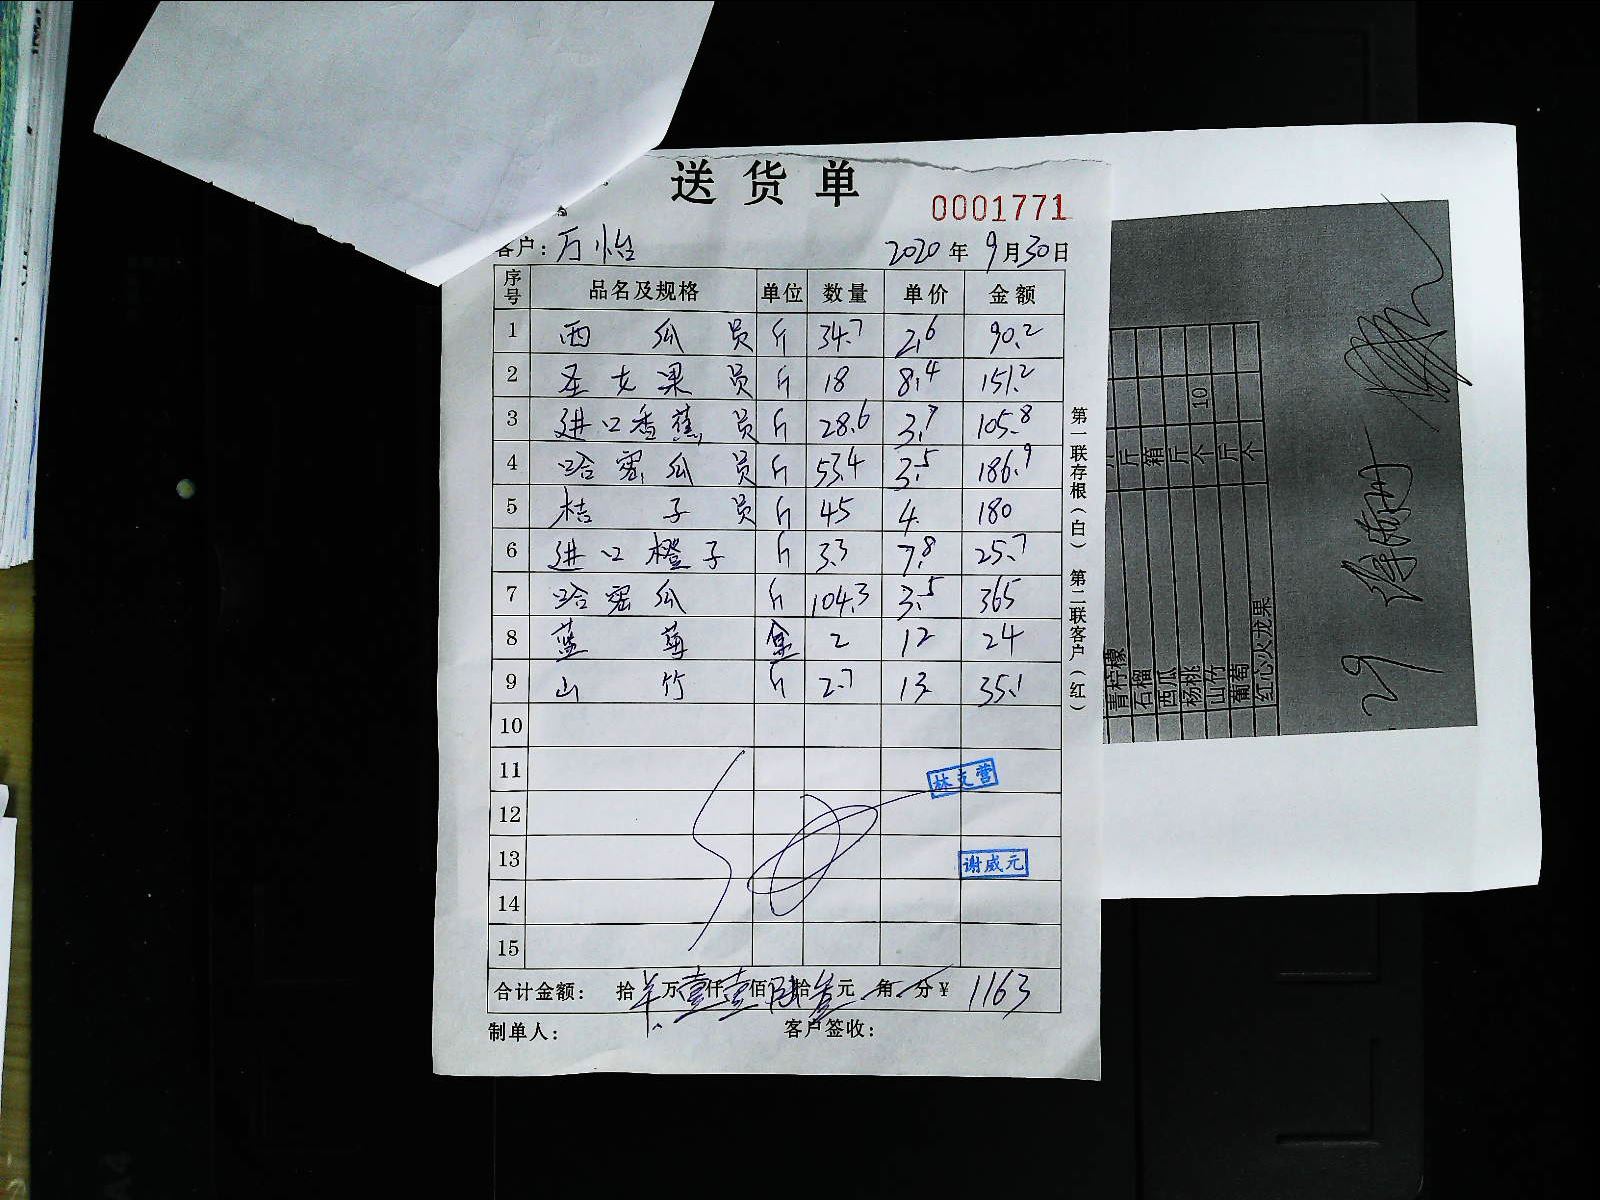 送货单
0001771
客户: 万怡 2020年9月30日
序号 品名及规格 单位 数量 单价 金额
1 西瓜员 斤 34.7 2.6 90.2
2 圣女果员 斤 18 8.4 151.2
3 进口香蕉员 斤 28.6 3.7 105.8
4 哈密瓜员 斤 53.4 3.5 186.9
5 桔子员 斤 45 4 180
6 进口橙子 斤 3.3 7.8 25.7
7 哈密瓜 斤 104.3 3.5 365
8 蓝莓 盒 2 12 24
9 山竹 斤 2.7 13 35.1
10
11
12
13
14
15
林支营
谢威元
合计金额: 拾 万壹仟壹佰陆拾叁元 角 分 ¥ 1163
制单人: 客户签收:
第一联存根(白) 第二联客户(红)
青柠檬 斤
石榴 斤
西瓜 箱
杨桃 斤
山竹 个 10
葡萄 斤
红心火龙果 个
29